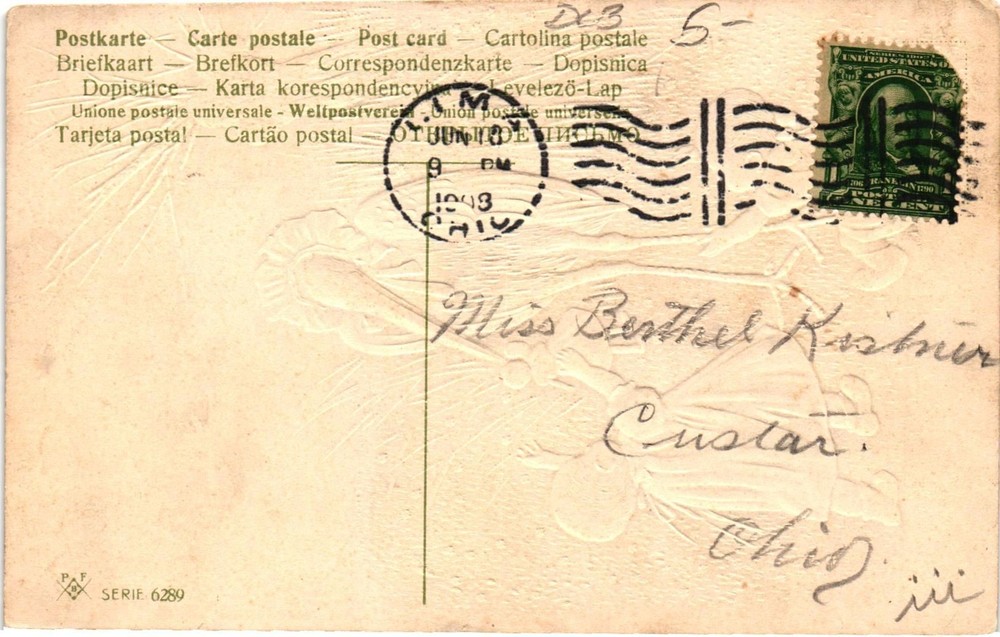 Dc3 5-
Postkarte — Carte postale — Post card — Cartolina postale
Briefkaart — Brefkort — Correspondenzkarte — Dopisnica
Dopisnice — Karta korespondencyjna — Levelező-Lap
Unione postale universale - Weltpostverein - Union postale universelle
Tarjeta postal — Cartão postal — ОТКРЫТОЕ ПИСЬМО
LIMA
JUN 18
9 PM
1908
OHIO
UNITED STATES OF
AMERICA
FRANKLIN
POST
ONE CENT
Miss Berthel Kistner
Custar.
Ohio.
iii
P F
B
SERIE 6289